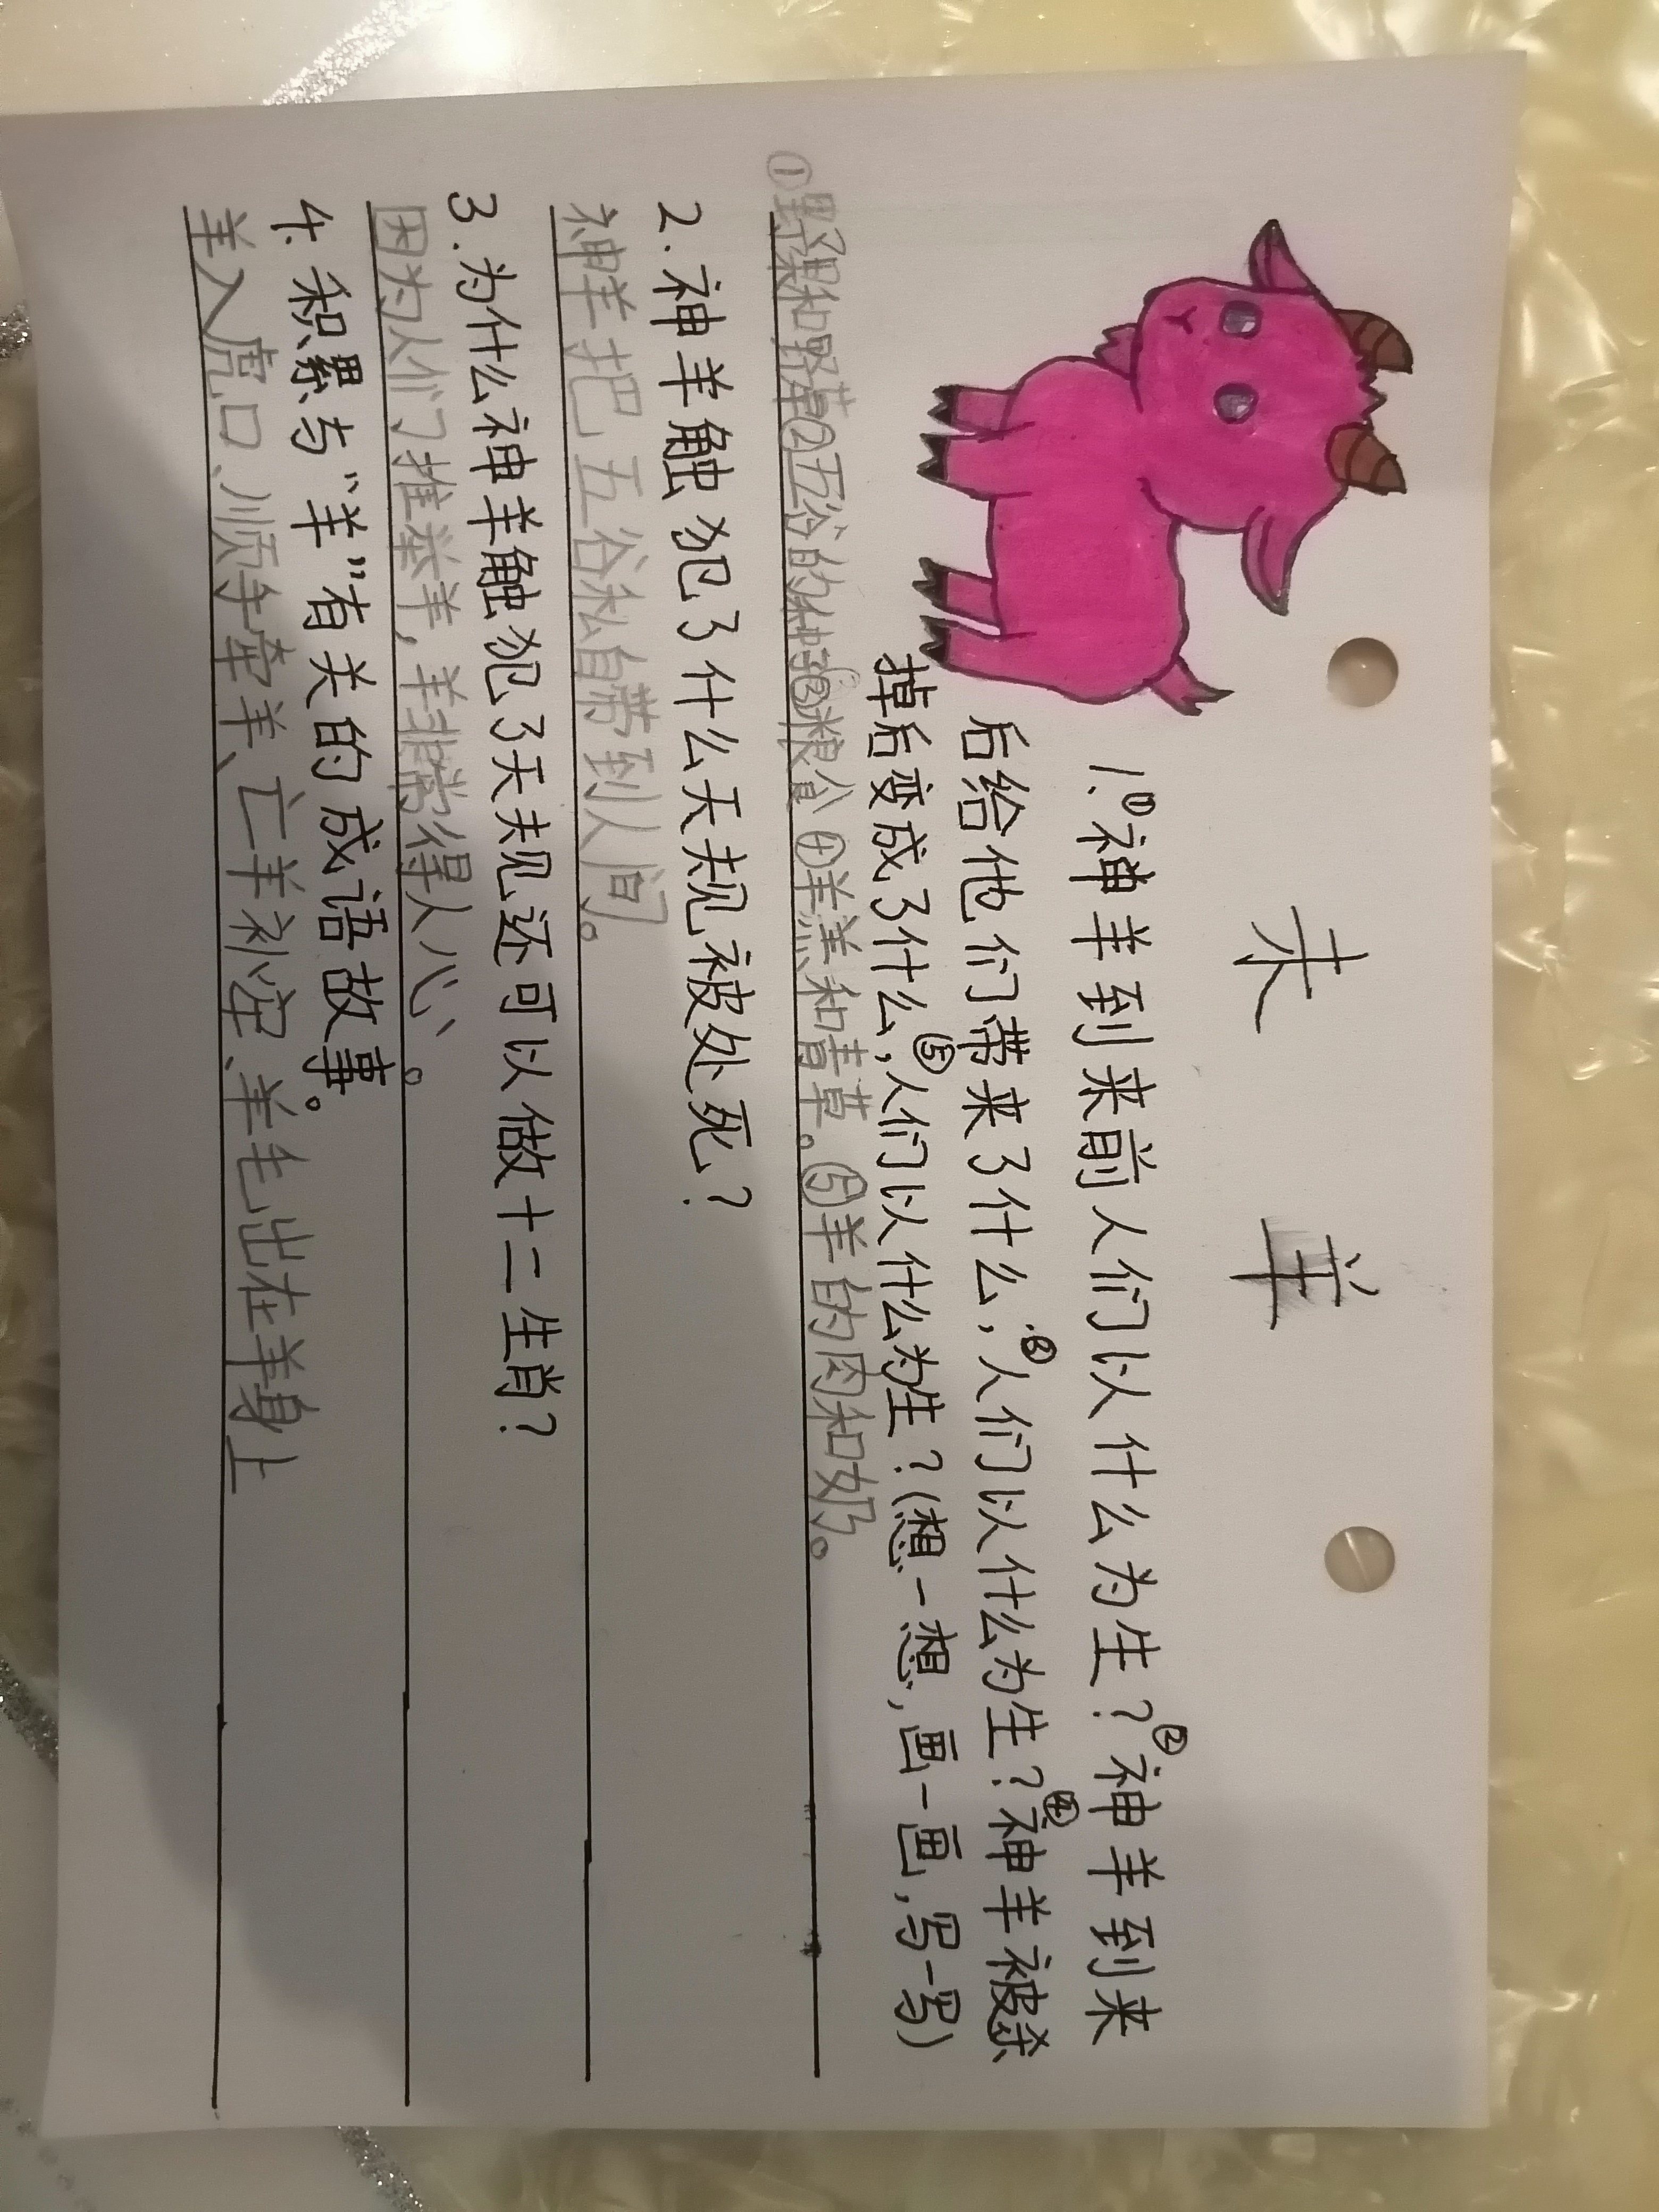 未 羊
1.①神羊到来前人们以什么为生?②神羊到来
后给他们带来了什么,③人们以什么为生?④神羊被杀
掉后变成了什么,⑤人们以什么为生?(想一想,画一画,写一写)
①野果和野草②五谷的种子③粮食④羊羔和青草。⑤羊的肉和奶。
2.神羊触犯了什么天规被处死?
神羊把五谷私自带到人间。
3.为什么神羊触犯了天规还可以做十二生肖?
因为人们推举羊,羊非常得人心。
4.积累与“羊”有关的成语故事。
羊入虎口、顺手牵羊、亡羊补牢、羊毛出在羊身上